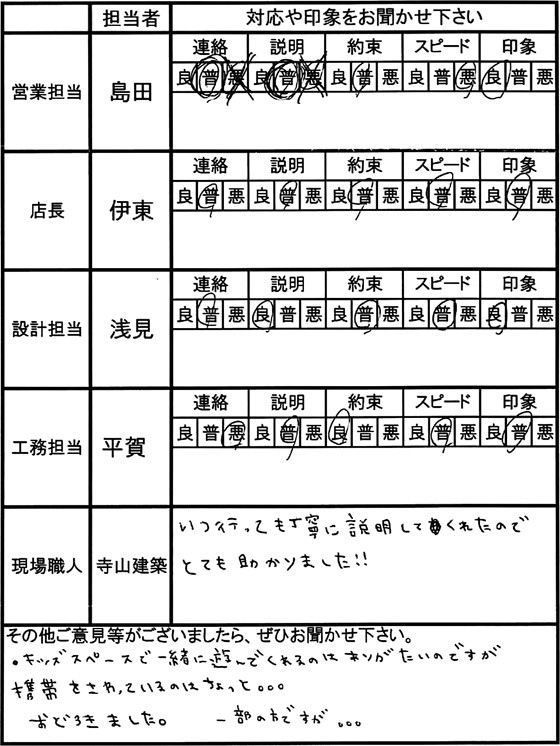 担当者 対応や印象をお聞かせ下さい
営業担当 島田 連絡 説明 約束 スピード 印象
良 普 悪 良 普 悪 良 普 悪 良 普 悪 良 普 悪
店長 伊東 連絡 説明 約束 スピード 印象
良 普 悪 良 普 悪 良 普 悪 良 普 悪 良 普 悪
設計担当 浅見 連絡 説明 約束 スピード 印象
良 普 悪 良 普 悪 良 普 悪 良 普 悪 良 普 悪
工務担当 平賀 連絡 説明 約束 スピード 印象
良 普 悪 良 普 悪 良 普 悪 良 普 悪 良 普 悪
現場職人 寺山建築 いつ行っても丁寧に説明してくれたので
とても助かりました!!
その他ご意見等がございましたら、ぜひお聞かせ下さい。
・キッズスペースで一緒に遊んでくれるのはありがたいのですが
携帯をさわっているのはちょっと...
おどろきました。 一部の方ですが...